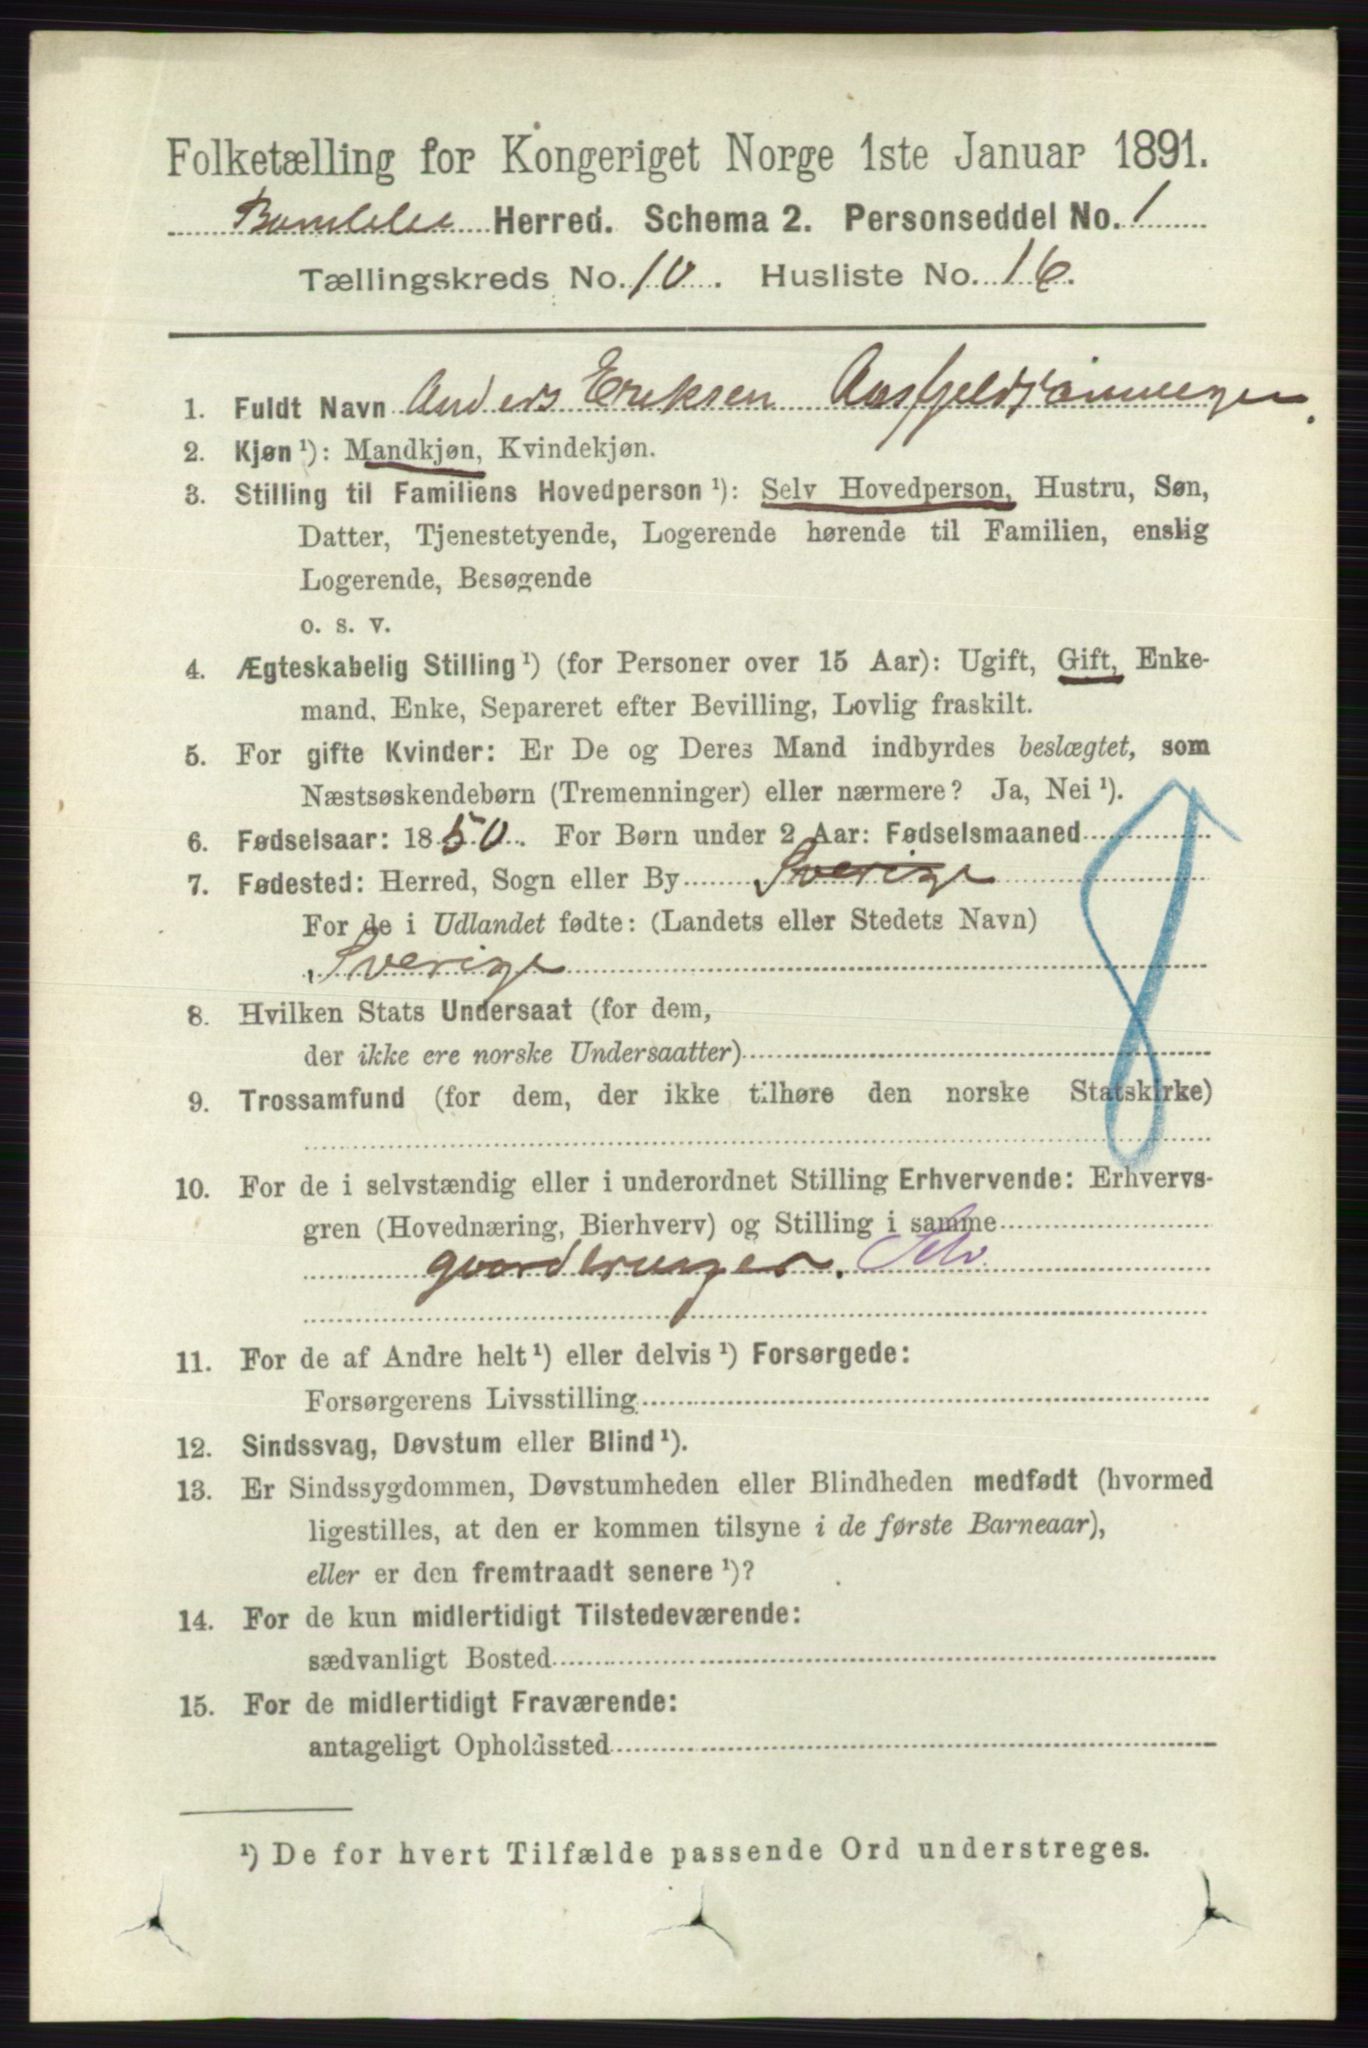 Folketælling for Kongeriget Norge 1ste Januar 1891.
Herred. Schema 2. Personseddel No. 1
Tællingskreds No. 10. Husliste No. 16.
1. Fuldt Navn Anders Eriksen
2. Kjøn ¹): Mandkjøn, Kvindekjøn.
3. Stilling til Familiens Hovedperson ¹): Selv Hovedperson, Hustru, Søn,
Datter, Tjenestetyende, Logerende hørende til Familien, enslig
Logerende, Besøgende
o. s. v.
4. Ægteskabelig Stilling ¹) (for Personer over 15 Aar): Ugift, Gift, Enke-
mand, Enke, Separeret efter Bevilling, Lovlig fraskilt.
5. For gifte Kvinder: Er De og Deres Mand indbyrdes beslægtet, som
Næstsøskendebørn (Tremenninger) eller nærmere? Ja, Nei ¹).
6. Fødselsaar: 1850. For Børn under 2 Aar: Fødselsmaaned
7. Fødested: Herred, Sogn eller By Sverige
For de i Udlandet fødte: (Landets eller Stedets Navn)
Sverige
8. Hvilken Stats Undersaat (for dem,
der ikke ere norske Undersaatter)
9. Trossamfund (for dem, der ikke tilhøre den norske Statskirke)
10. For de i selvstændig eller i underordnet Stilling Erhvervende: Erhvervs-
gren (Hovednæring, Bierhverv) og Stilling i samme
gaardbruger. Selv
11. For de af Andre helt ¹) eller delvis ¹) Forsørgede:
Forsørgerens Livsstilling
12. Sindssvag, Døvstum eller Blind ¹).
13. Er Sindssygdommen, Døvstumheden eller Blindheden medfødt (hvormed
ligestilles, at den er kommen tilsyne i de første Barneaar),
eller er den fremtraadt senere ¹)?
14. For de kun midlertidigt Tilstedeværende:
sædvanligt Bosted
15. For de midlertidigt Fraværende:
antageligt Opholdssted
¹) De for hvert Tilfælde passende Ord understreges.